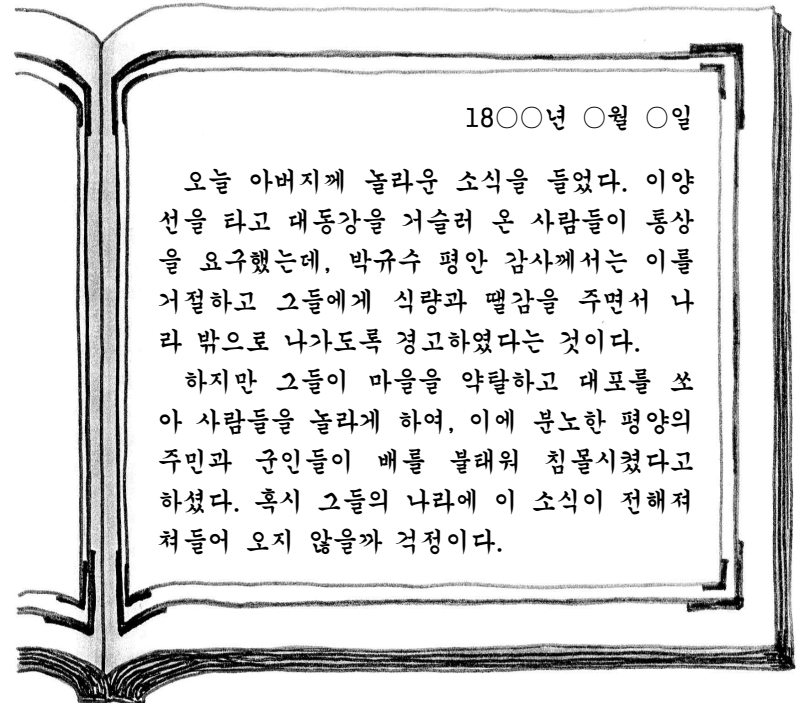 18○○년 ○월 ○일
오늘 아버지께 놀라운 소식을 들었다. 이양
선을 타고 대동강을 거슬러 온 사람들이 통상
을 요구했는데, 박규수 평안 감사께서는 이를
거절하고 그들에게 식량과 땔감을 주면서 나
라 밖으로 나가도록 경고하였다는 것이다.
하지만 그들이 마을을 약탈하고 대포를 쏘
아 사람들을 놀라게 하여, 이에 분노한 평양의
주민과 군인들이 배를 불태워 침몰시켰다고
하셨다. 혹시 그들의 나라에 이 소식이 전해져
쳐들어 오지 않을까 걱정이다.